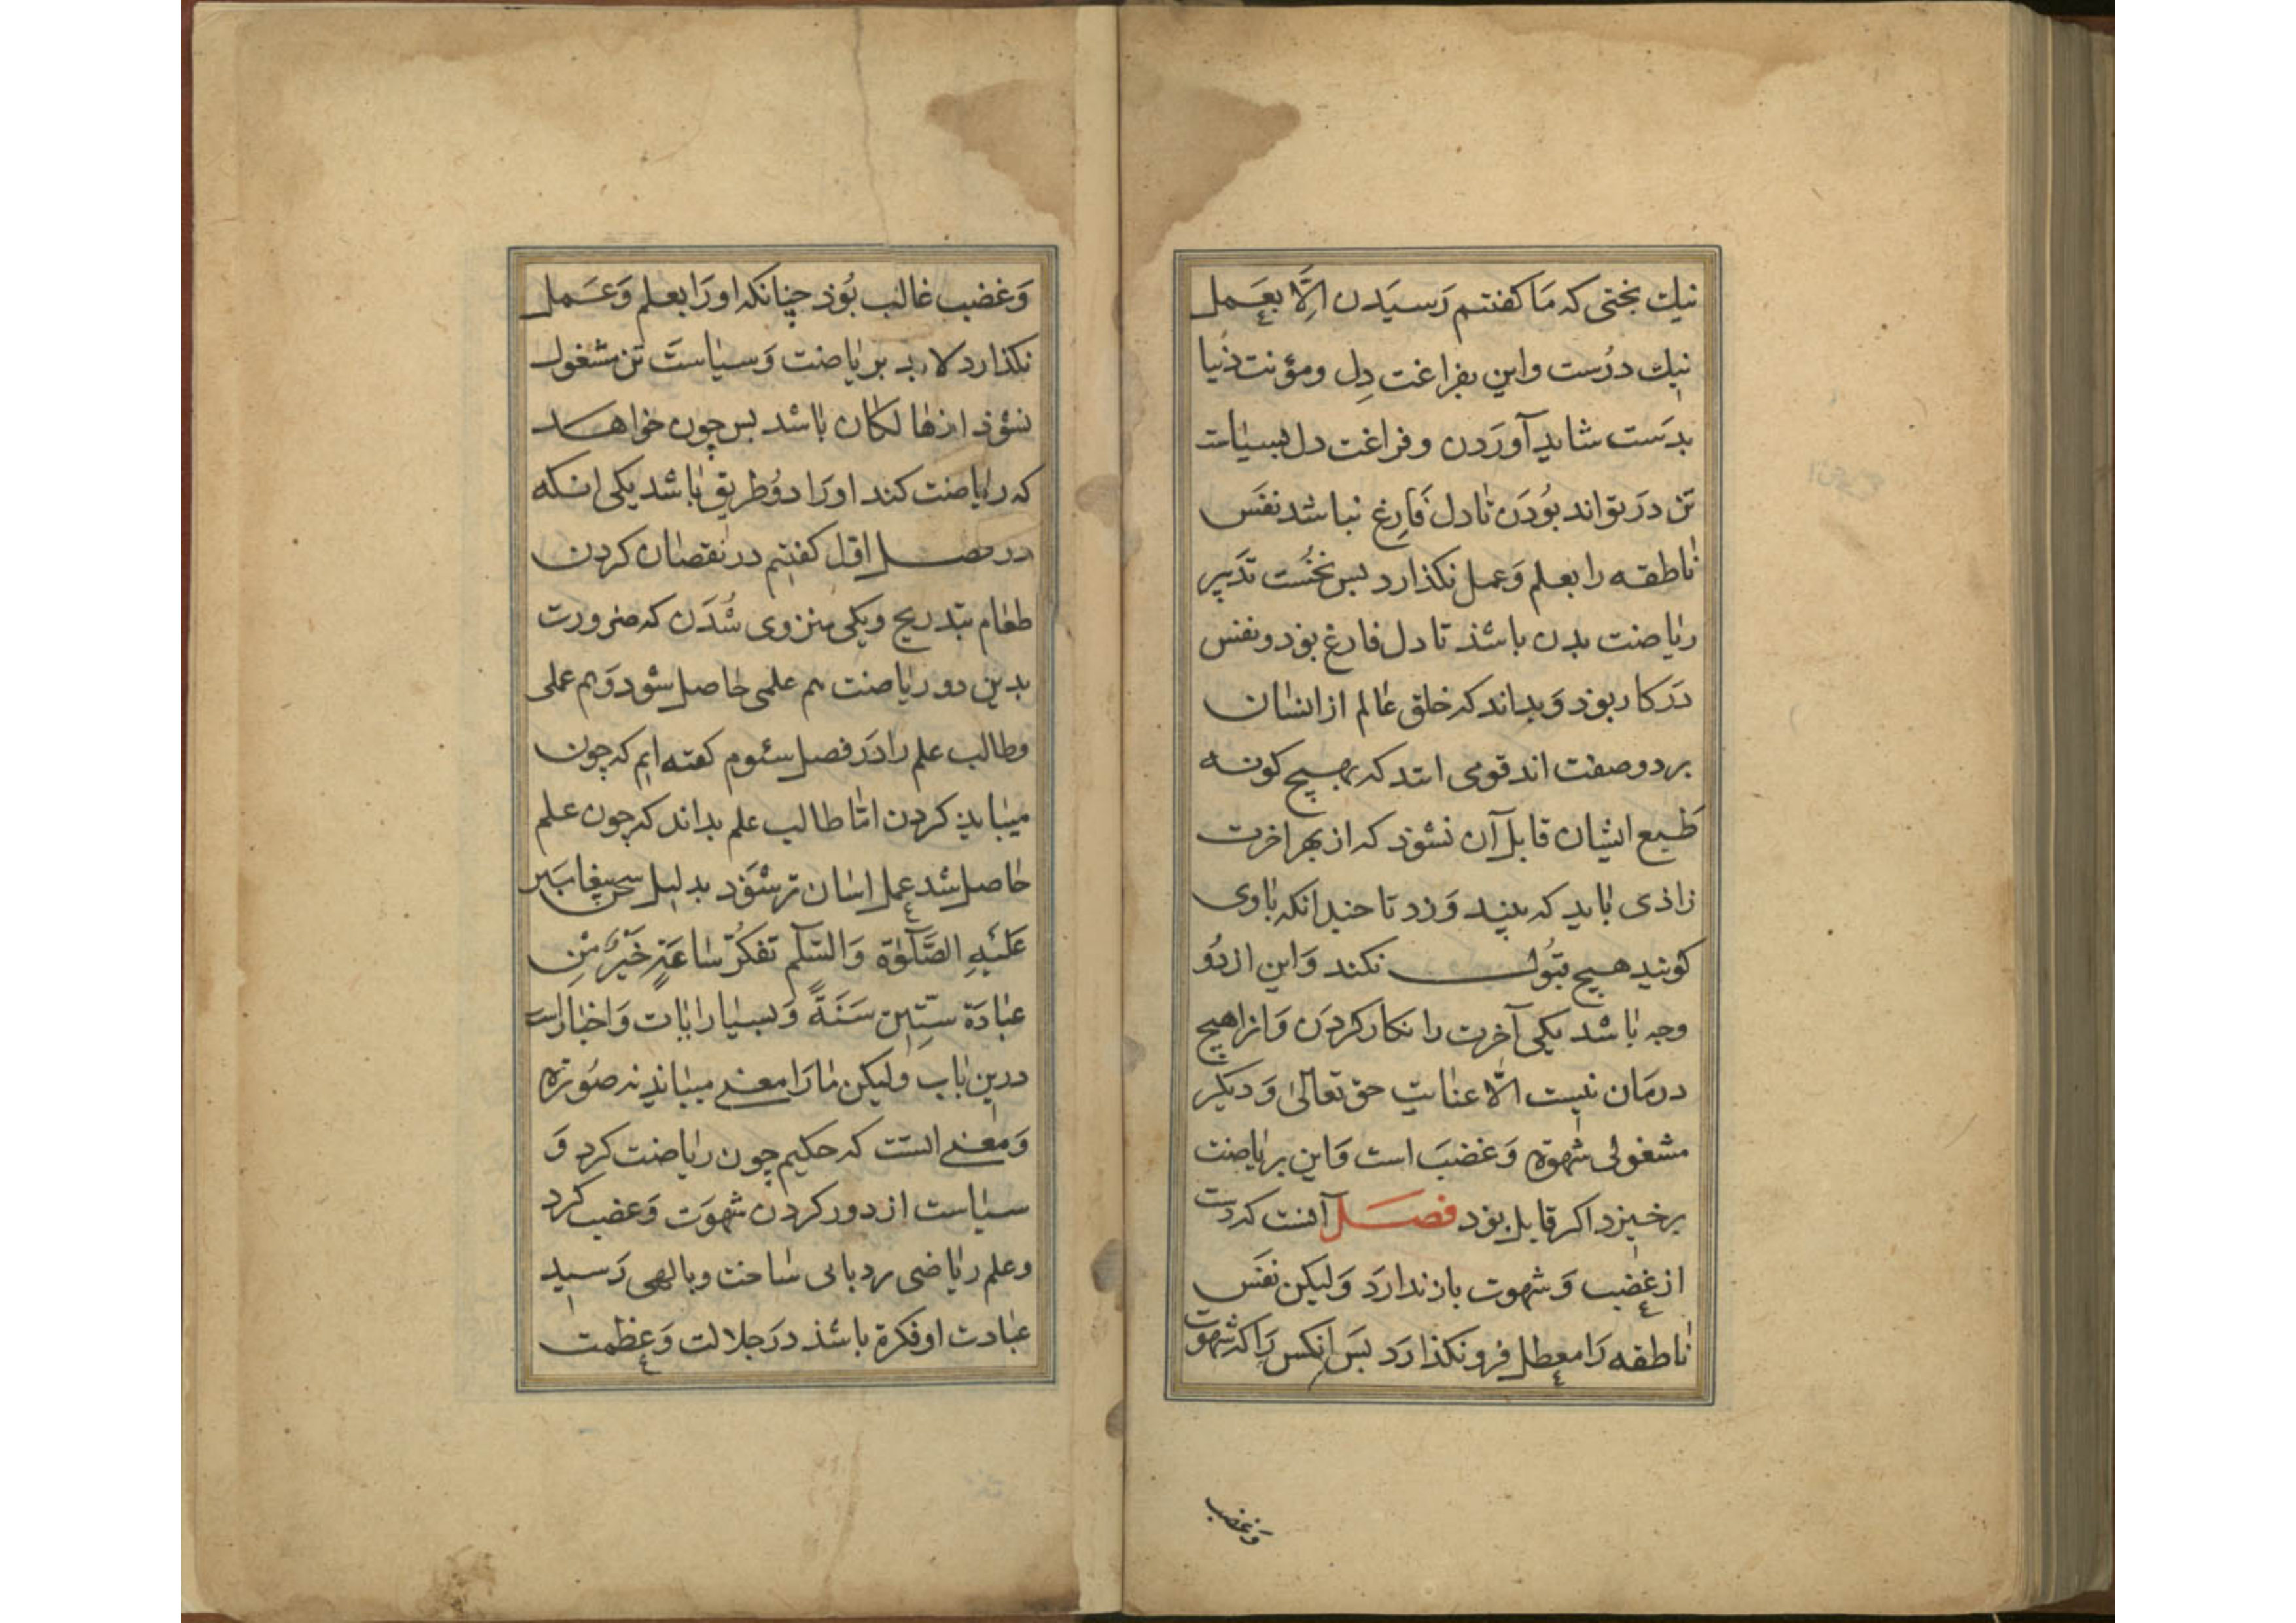 نیك بختی که مَا کفتم رَسیَدن اِلَّا بعَمل
نیك درُست واین بفراغت دِل ومؤنت دُنیا
بدَست شاید آوَرَدن وفراغت دل بسیاست
تن دَر تواند بوُدَن تا دل فَارِغ نباشد نفَس
ناطقه را بعلم وَعمل نکذارد بس نخُست تدَبیر
ریاضت بدن باشذ تا دل فارغ بوَد ونفس
دَرکار بوَد وَبداند که خلق عالم از انسان
بر دو صفت اند قومی انند که بهیچ کونه
طَبع ایشان قابل آن نشوَذ که از بهر اخرت
زاذی باید که بیند وَزد تا چندانکه باوی
کویند هیچ قبُول نکند وَاین از دُو
وجه باشد یکی آخرت را نکار کردَن وَانرا هیچ
درمَان نیست الّا عنایت حق تعالیٰ وَدیکر
مشغولی شهوَة وَغضبَ است وَاین بریاضت
برخیزد اکر قابل بوَد فصَل آفتست که دست
از غضب وَشهوت باز ندارَد وَلیکن نفَس
ناطقه رَا معطل فرو نکذارَد بسَ انکس رَا که شهوَت
وَغضب
وَغضب غالب بُوَذ چنانکه او رَا بعلم وَعَمل
نکذارد لابد بریاضت وَسیاستَ تن مشغول
نشوَذ از هالکان باشد بس چون خواهد
که ریاضت کند او رَا دوُ طریق باشد یکی انکه
در فصل اوّل کفتیم در نقصان کردن
طعام بتدریج ویکی منزوی شُدَن که ضرورت
بدین دو ریاضت هم علمی حاصل شود وَهم عملی
وطالب علم را دَر فصل سئوم کفته ایم که چون
میباید کردن امّا طالب علم بداند که چون علم
حاصل شد عمل اسان تر شوَد بدلیل سخن پیغامبَر
عَلیَهِ الصَّلوٰة وَالسَّلٰم تفَکرُّ سَاعَةٍ خَیْرٌ مّنِ
عبَادَة سِتّیِن سَنَةً وَبسیار ایات وَاخبار است
درین باب وَلیکن مَا رَا معنی میباید نه صُورَة
وَمعنی انست که حکیم چون ریاضت کرد وَ
سیاست از دور کردن شهوَت وَغضب کرد
وعلم ریاضی نردبانی ساخت وبالهی رَسید
عبادت او فکرة باشذ دَر جلالت وَعظمت